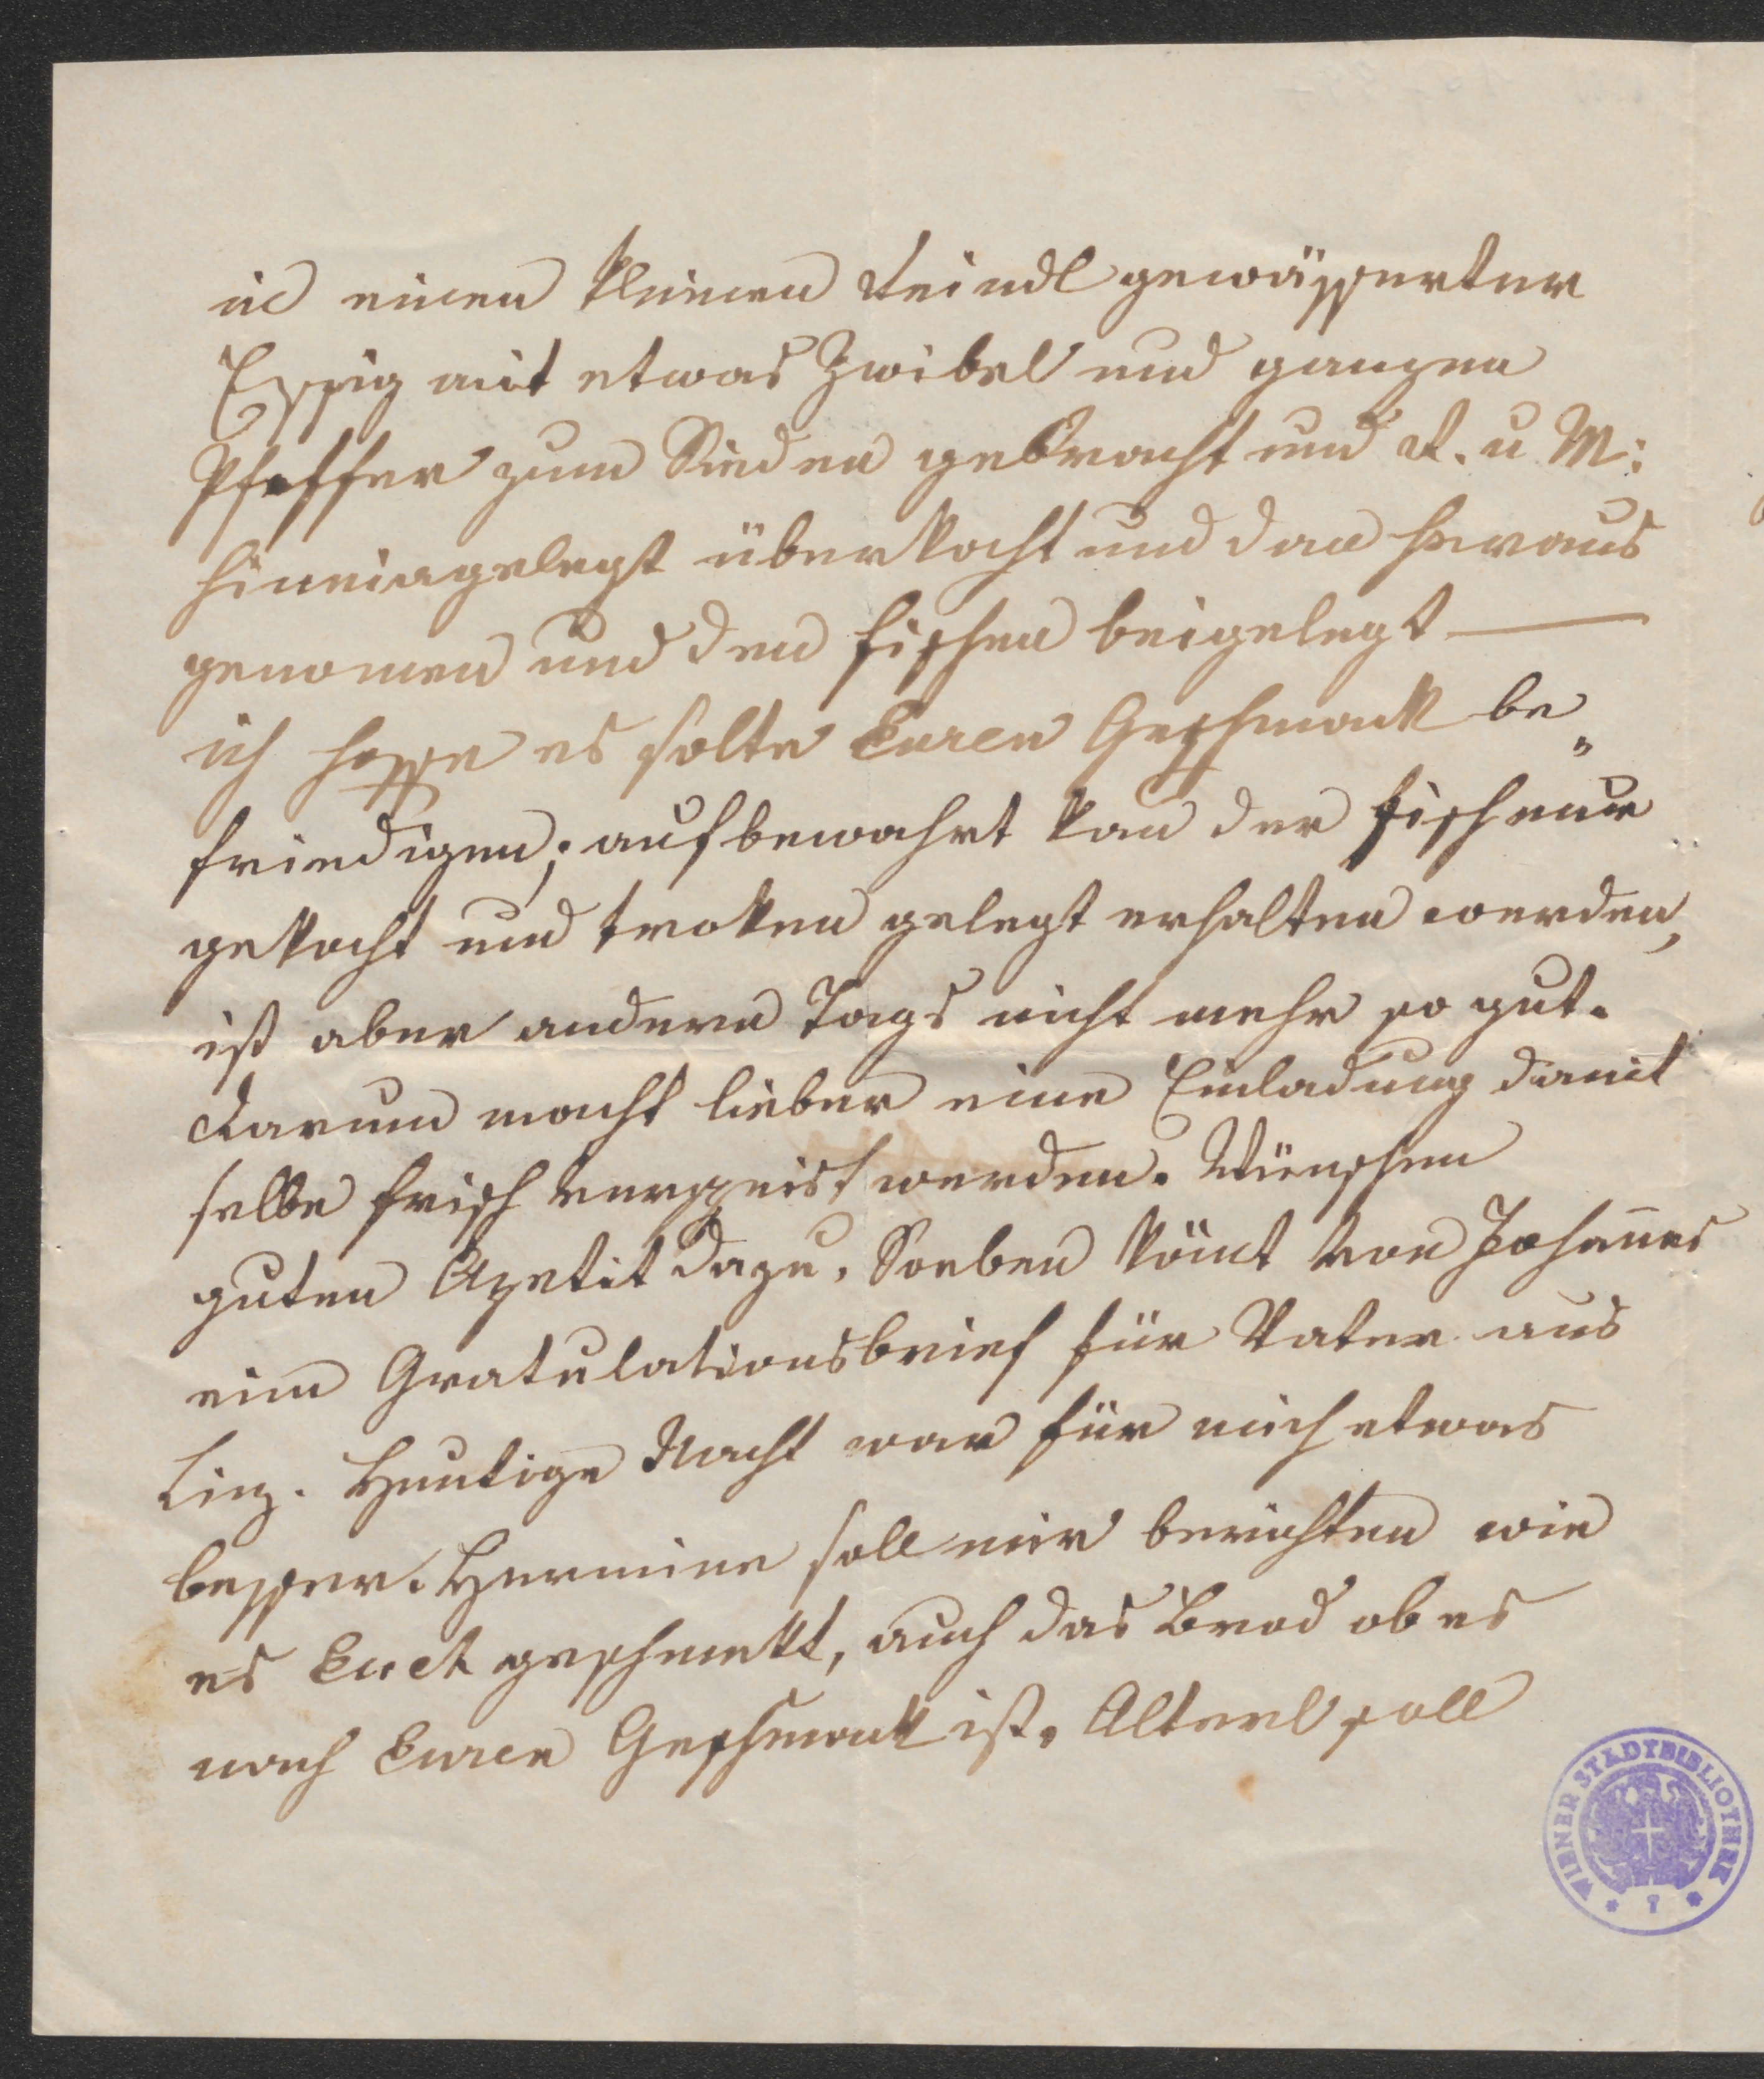 in einen kleinen Reindl gewässerter
Essig mit etwas Zwibel und ganzen
Pfeffer zum Sieden gebracht und R. u M:
hineingelegt überkocht und dan heraus
genomen und den Fischen beigelegt —
ich hoffe es solte Euren Geschmack be„
friedigen; aufbewahrt kan der Fisch nur
gekocht und troken gelegt erhalten werden,
ist aber andern Tags nicht mehr so gut.
Darum macht lieber eine Einladung damit
selbe frisch verspeist werden. Wünschen
guten Apetit dazu. Soeben kömt von Johan̅es
ein Gratulationsbrief für Vater aus
Linz. Heutige Nacht war für mich etwas
besser. Hermine soll mir berichten wie
es Euch geschmekt, auch das Brod ob es
nach Euren Geschmack ist. Alterl soll
WIENER STADTBIBLIOTHEK
* 7 *